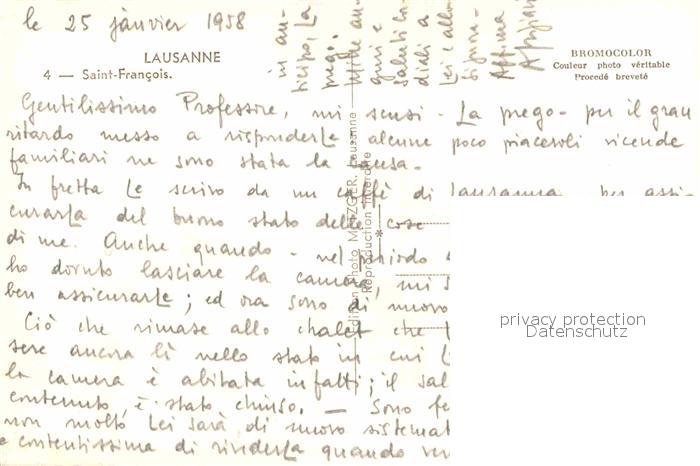 le 25 janvier 1958
LAUSANNE
4 — Saint-François.
BROMOCOLOR
Couleur photo véritable
Procedé breveté
Gentilissimo Professore, mi scusi - La prego - per il gran
ritardo messo a risponderLe alcune poco piacevoli vicende
familiari ne sono stata la causa.
In fretta Le scrivo da un caffè di Lausanna per assi-
curarLa del buono stato delle cose
di me. Anche quando - nel periodo
ho dovuto lasciare la camera, mi s
ben assicurarLe; ed ora sono di nuovo
Ciò che rimase allo chalet che
sere ancora lì nello stato in cui L
la camera è abitata infatti; il sal
contenuto, è stato chiuso. — Sono
non molto Lei sarà di nuovo sistemat
e contentissima di rivederLa quando ver
in an-
ticipo, La
prego.
Mille au-
guri e
saluti cor-
diali a
Lei e alla
Signora
Edition Photo METZGER, Lausanne
Reproduction interdite
privacy protection
Datenschutz